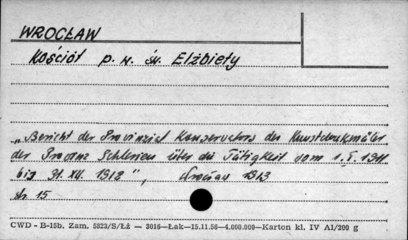 WROCŁAW
Kościół p. w. św. Elżbiety
„Bericht der Provinzial Konservators der Kunstdenkmäler
der Provinz Schlesien über die Tätigkeit vom 1.I.1911
bis 31. XII. 1912", 1913
str. 15
CWD - B-15b. Zam. 5823/S/Łż — 3016—Łak—15.11.56—4.000.000—Karton kl. IV A1/200 g